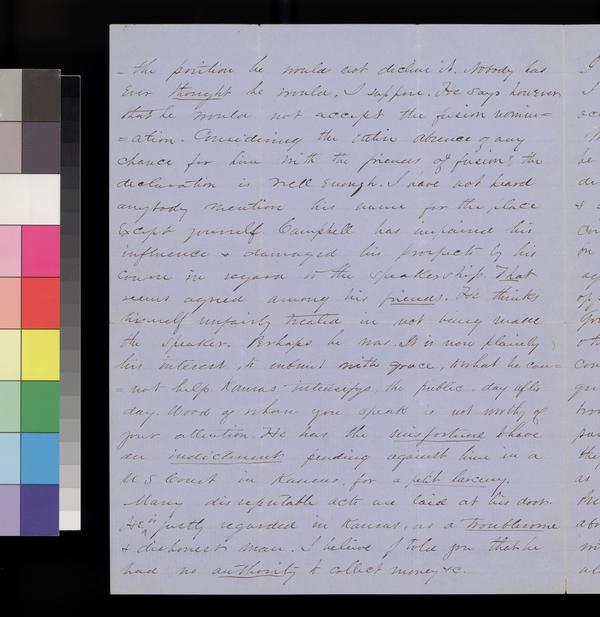 - the position he would not decline it. Nobody has
Ever thought he would, I suppose. He says however
that he would not accept the fusion nomin=
=ation. Considering the entire absence of any
chance for him with the friends of fusion, the
declaration is well enough. I have not heard
anybody mention his name for the place
Except yourself Campbell has impaired his
influence & damaged his prospects by his
course in regard to the speakership. That
seems agreed among his friends. He thinks
himself unfairly treated in not being made
the Speaker. Perhaps he was. It is now plainly
his interest, to submit with grace, to what he can=
=not help Kansas intensifys the public day after
day. Wood of whom you speak is not worthy of
your attention. He has the misfortune to have
an indictment pending against him in a
U S Court in Kansas, for a petit larceny.
Many disreputable acts are laid at his door.
He is justly regarded in Kansas, as a troublesome
& dishonest man. I believe I told you that he
had no authority to collect money &c.